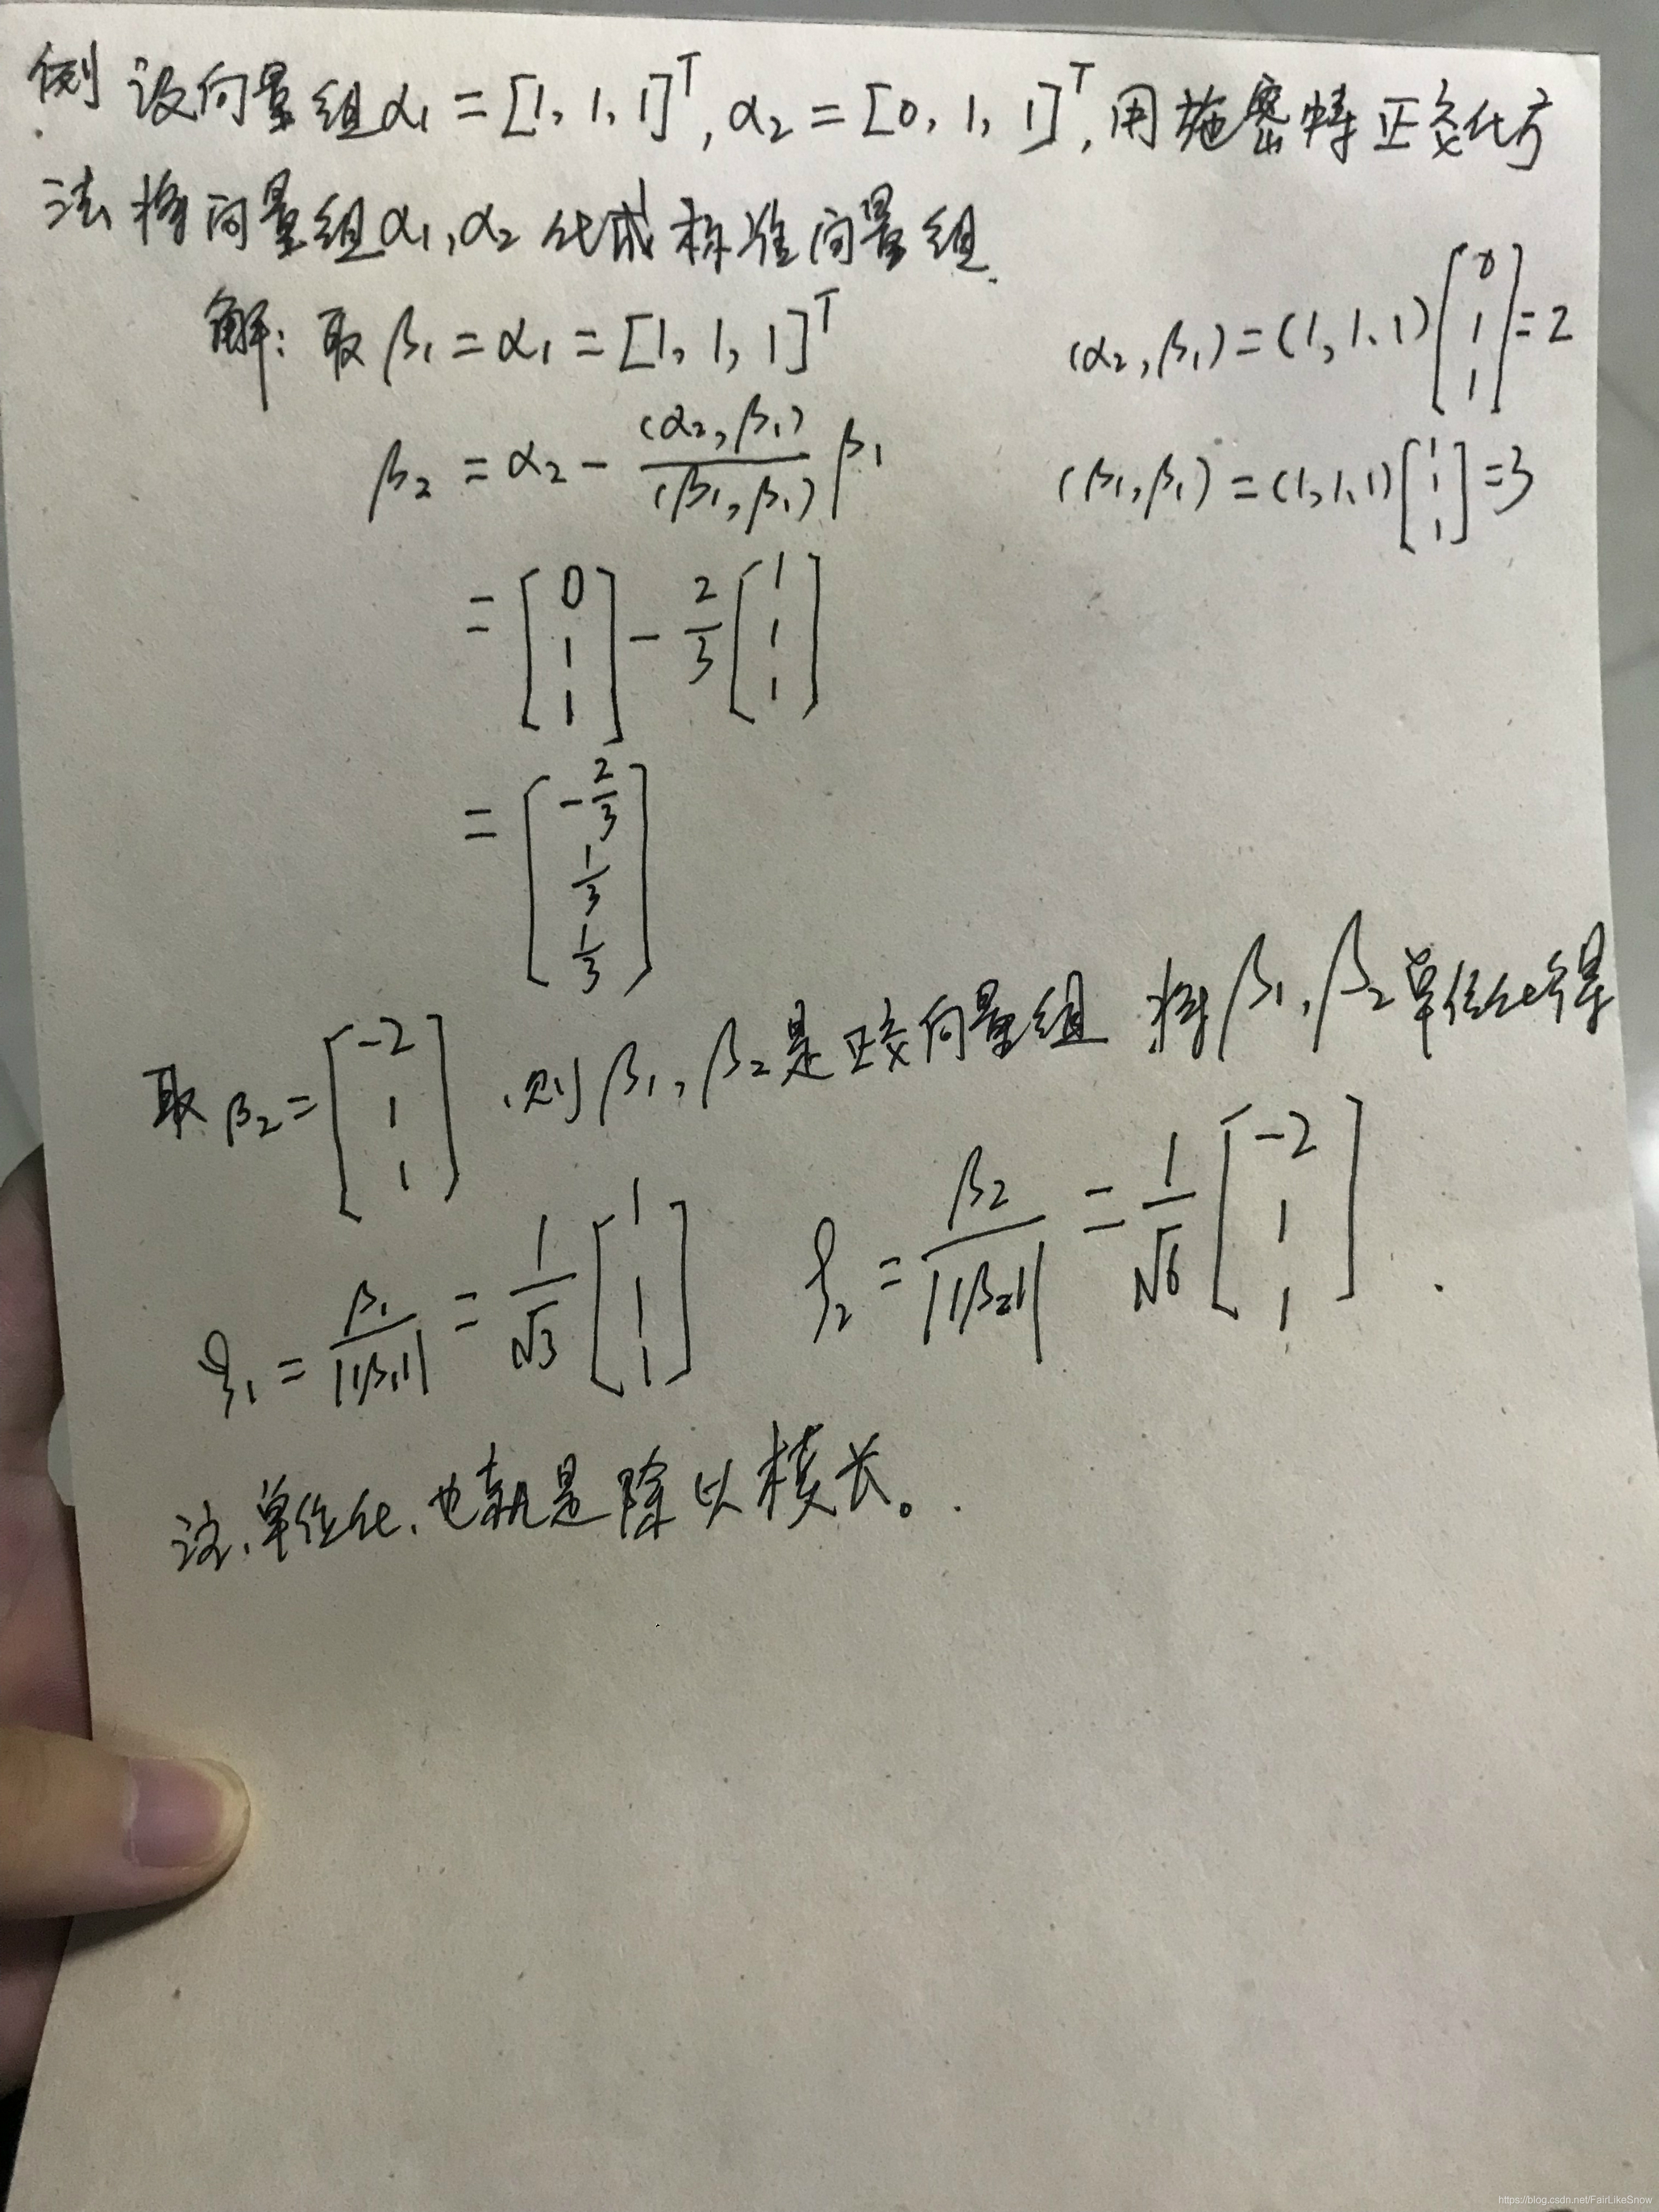 例 设向量组α₁ = [1, 1, 1]ᵀ, α₂ = [0, 1, 1]ᵀ, 用施密特正交化方
法将向量组α₁, α₂ 化成标准向量组.
解: 取 β₁ = α₁ = [1, 1, 1]ᵀ
(α₂, β₁) = (1, 1, 1) [0 1 1] = 2
β₂ = α₂ - (α₂, β₁)/(β₁, β₁) β₁
(β₁, β₁) = (1, 1, 1) [1 1 1] = 3
= [0 1 1] - 2/3 [1 1 1]
= [-2/3 1/3 1/3]
取 β₂ = [-2 1 1] , 则 β₁, β₂ 是正交向量组 将 β₁, β₂ 单位化得
ξ₁ = β₁/||β₁|| = 1/√3 [1 1 1] ξ₂ = β₂/||β₂|| = 1/√6 [-2 1 1] .
注, 单位化, 也就是除以模长。.
https://blog.csdn.net/FairLikeSnow